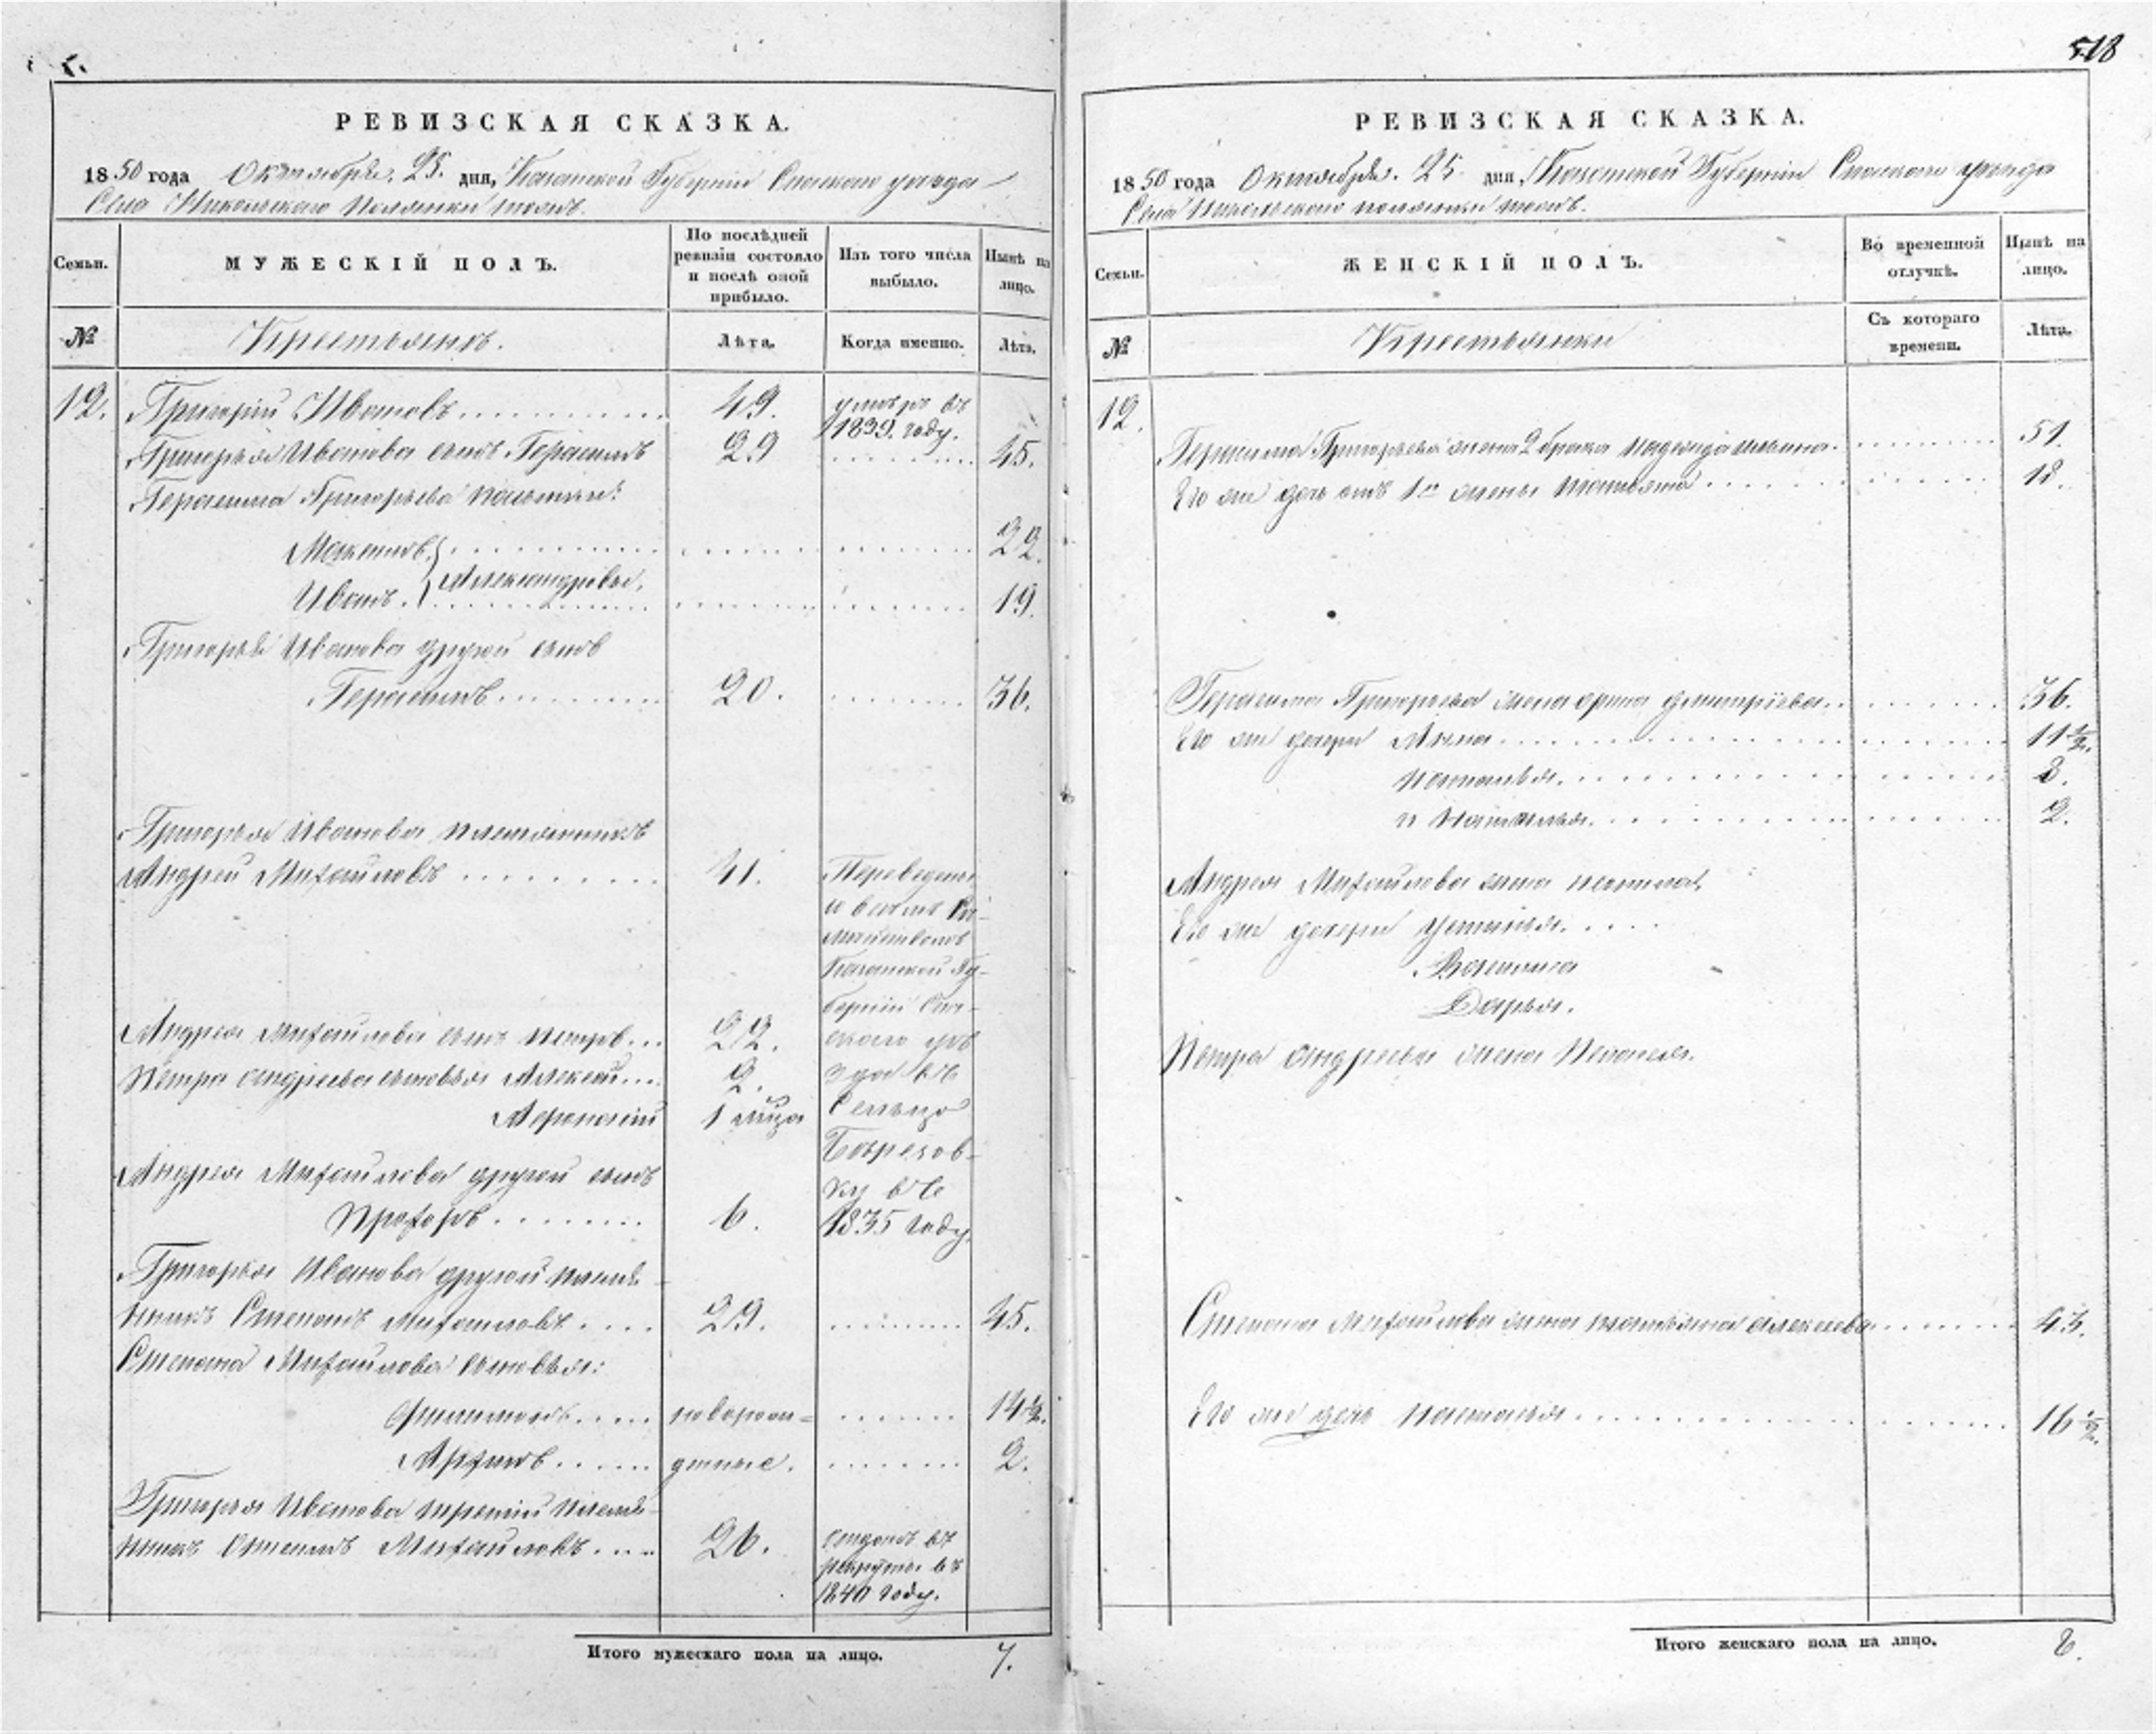 РЕВИЗСКАЯ СКАЗКА.
1850 года Октября. 25. дня, Казанской Губернiи Спаскаго уезда
Села Никольскаго Полянки тожъ.
Семьи.
МУЖЕСКIЙ ПОЛЪ.
По послѣдней ревизiи состояло и послѣ оной прибыло.
Изъ того числа выбыло.
Нынѣ на лицо.
№
Крестьянъ.
Лѣта.
Когда именно.
Лѣта.
12. Григорiй Ивановъ 49. умеръ въ 1839. году.
Григорья Иванова сынъ Герасимъ 29 45.
Герасима Григорьева пасынки:
Максимъ 22.
Александровы.
Иванъ. 19.
Григорья Иванова другой сынъ
Герасимъ 20. 36.
Григорья Иванова племянникъ
Андрей Михайловъ 41. Переведены
Казанской Гу-
бернiи Спа-
Андрея Михайлова сынъ Петръ 22. скаго уѣ
Петра Андреева сыновья Алексей 2. зда въ
Афонасiй 1 м͠ца Сельцо
Андрея Михайлова другой сынъ
ку въ
Прохоръ 6. 1835 году.
Григорья Иванова другой племя-
нникъ Степанъ Михайловъ 29. 45.
Степана Михайлова сыновья:
Филимонъ новорож- 14½.
денные. 2.
Григорья Иванова третiй племя-
нникъ Михайловъ 26. отданъ въ
рекруты въ
1840 году.
Итого мужескаго пола на лицо. 7.
518
РЕВИЗСКАЯ СКАЗКА.
1850 года Октября. 25 дня, Казанской Губернiи Спаскаго уезда
Села Никольскаго полянки тожъ.
Семьи.
ЖЕНСКIЙ ПОЛЪ.
Во временной отлучкѣ.
Нынѣ на лицо.
№
Крестьянки
Съ котораго времени.
Лѣта.
12.
Герасима Григорьева жена 2 брака Надежда Ильина 51.
Его же дочь отъ 1й жены Татьяна 18.
Герасима Григорьева жена Орина Дмитрiева 36.
Его же дочери Анна 11½.
Наталья. 8.
и Наталья. 2.
Андрея Михайлова жена
Его же дочери Устинья.
Василиса
Дарья.
Петра Андреева жена Пелагея.
Степана Михайлова жена Татьяна Алексеева 43.
Его же дочь Настасья 16½.
Итого женскаго пола на лицо. 8.